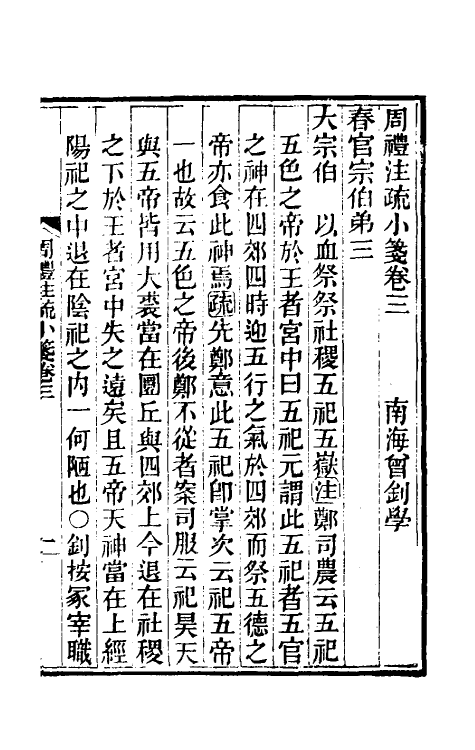 周禮注疏小箋卷三　　　南海曾釗學
春官宗伯弟三
大宗伯　以血祭祭社稷五祀五嶽注鄭司農云五祀
五色之帝於王者宮中曰五祀元謂此五祀者五官
之神在四郊四時迎五行之氣於四郊而祭五德之
帝亦食此神焉疏先鄭意此五祀卽掌次云祀五帝
一也故云五色之帝後鄭不從者案司服云祀昊天
與五帝皆用大裘當在圜丘與四郊上今退在社稷
之下於王者宮中失之遠矣且五帝天神當在上經
陽祀之中退在陰祀之內一何陋也○釗按冢宰職
周禮注疏小箋卷三